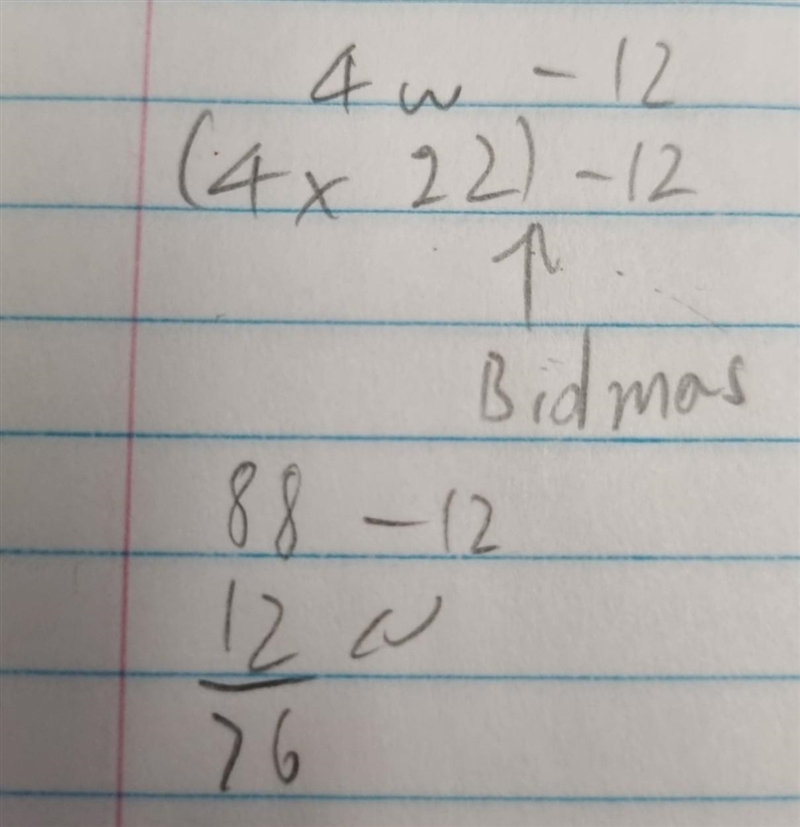 4w - 12
(4x 22) - 12
Bidmas
88 - 12
12
76